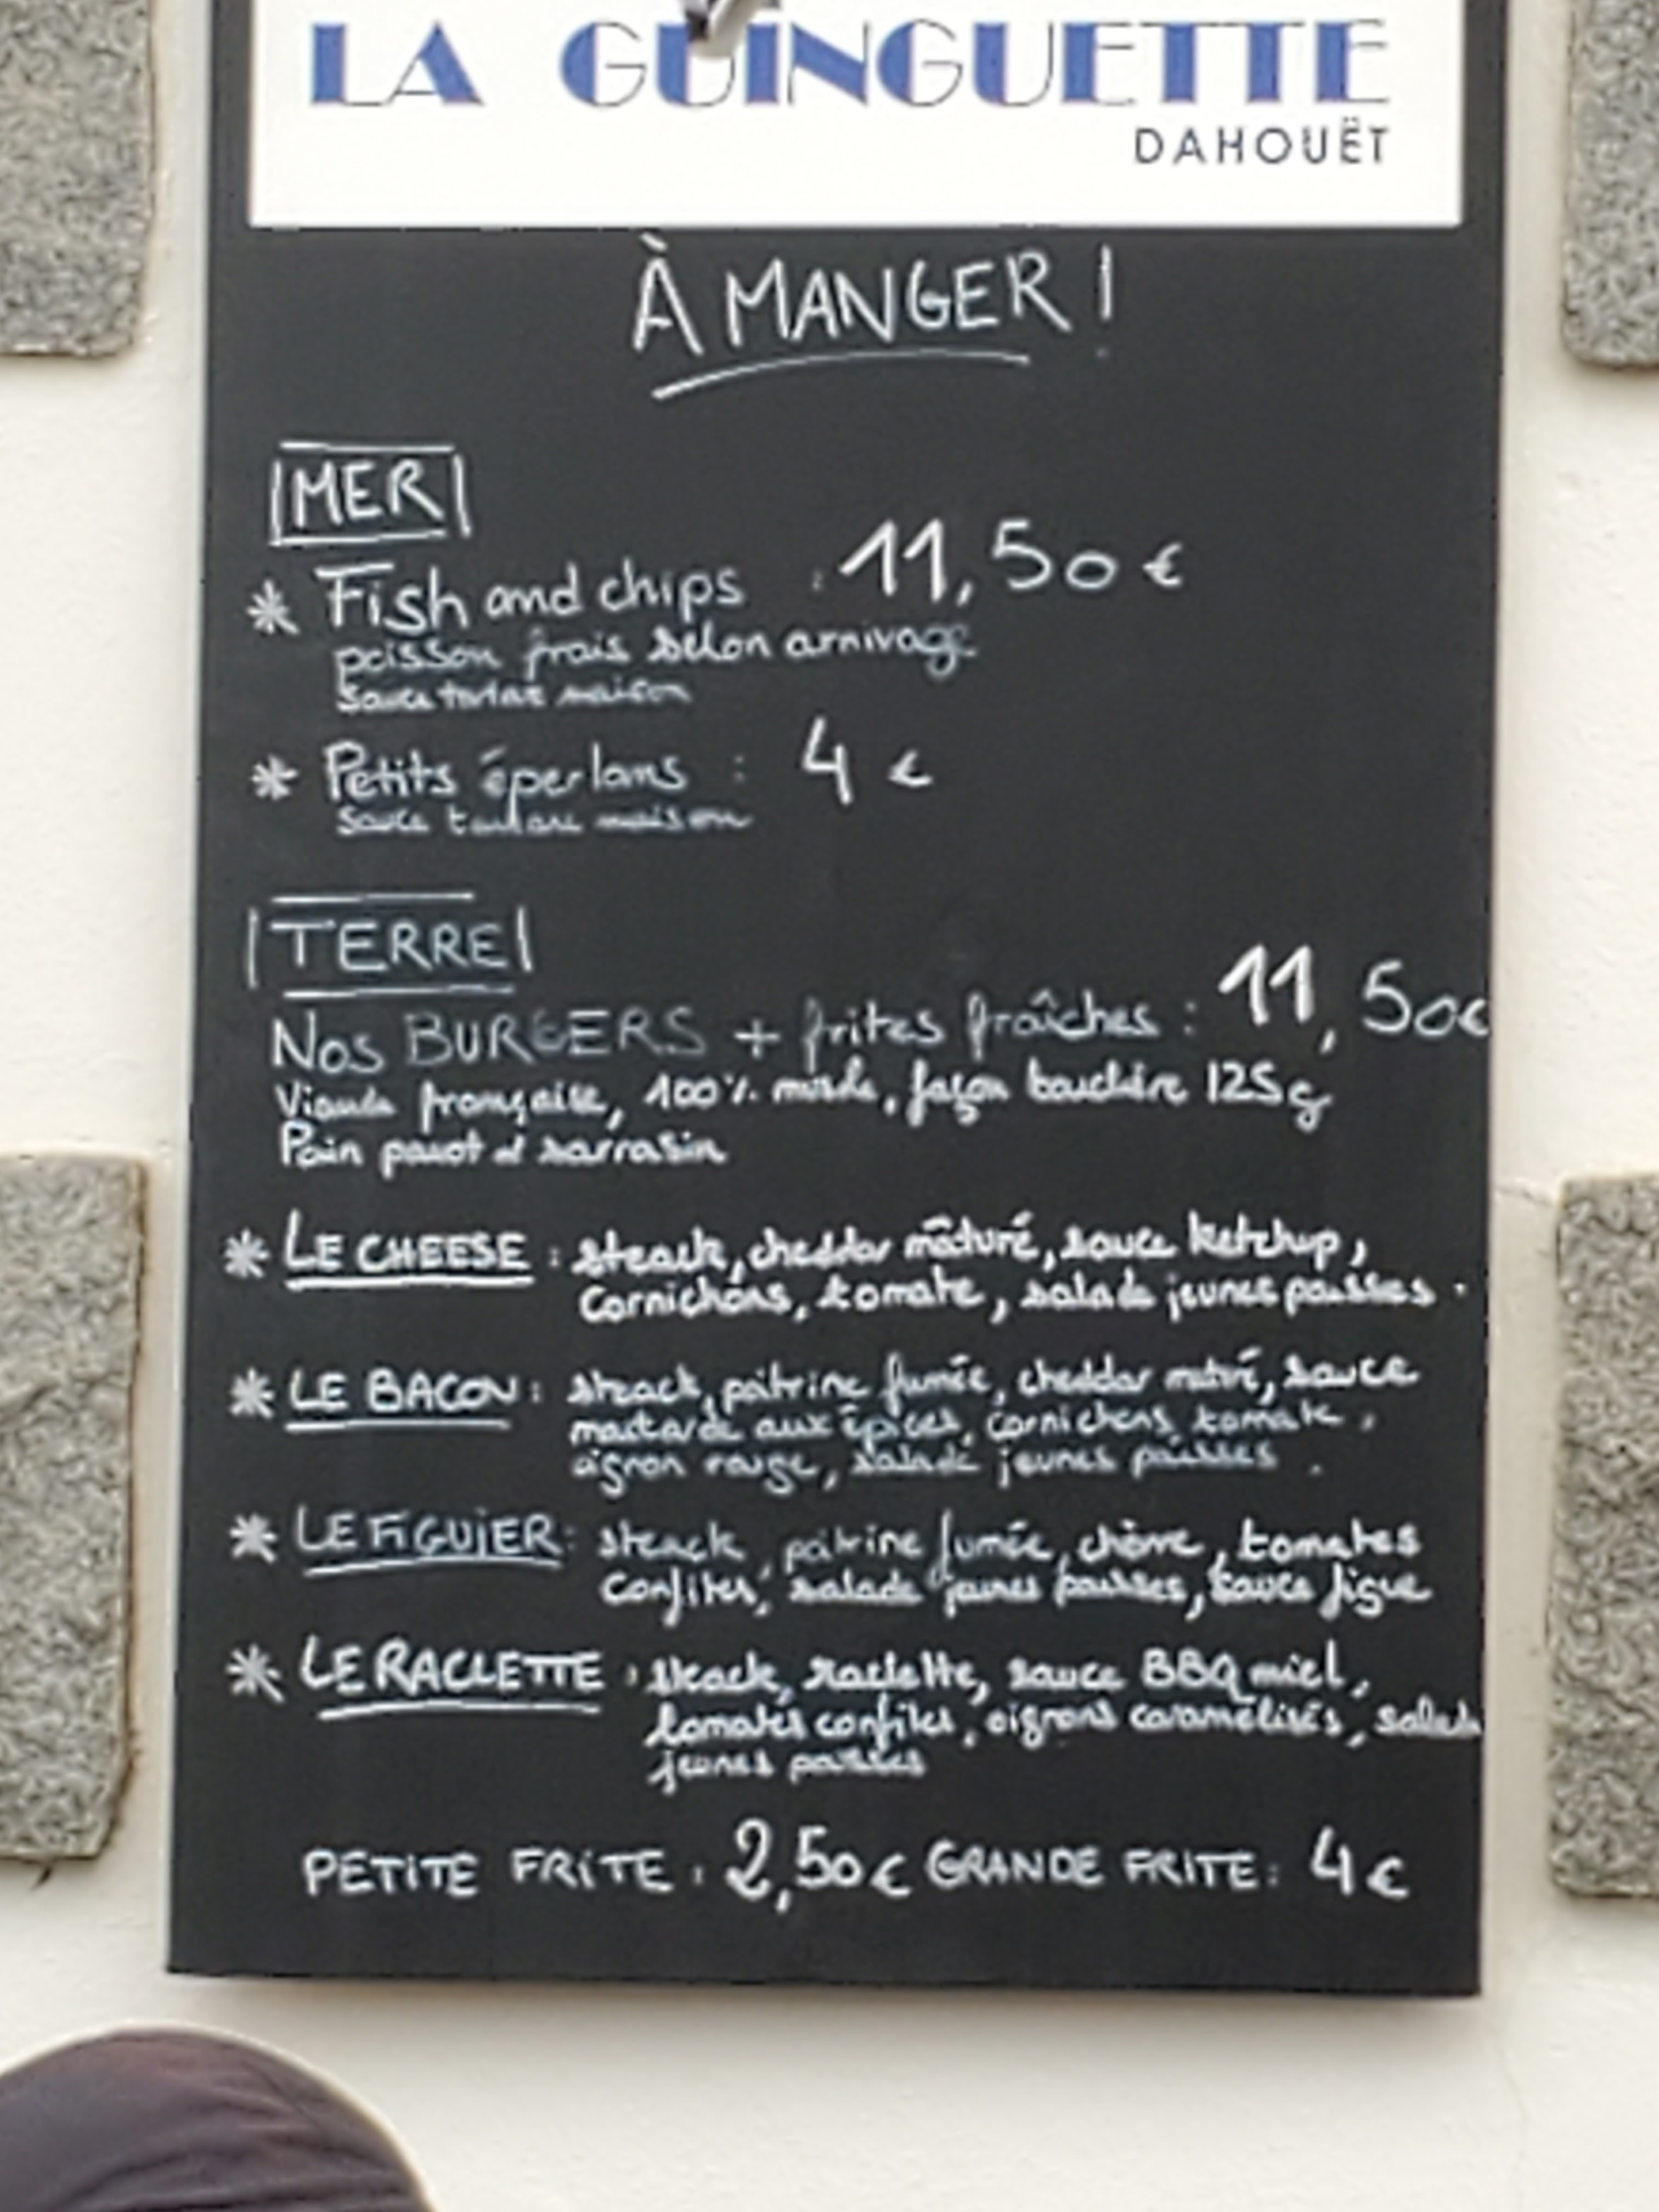 LA GUINGUETTE
DAHOUËT
À MANGER !
MER
* Fish and chips : 11,50 €
poisson frais selon arrivage
sauce tartare maison
* Petits éperlans : 4 €
sauce tartare maison
TERRE
Nos BURGERS + frites fraîches : 11,50€
Viande française, 100% muscle, façon bouchère 125g
Pain pavot et sarrasin
* LE CHEESE : steack, cheddar mâturé, sauce ketchup,
cornichons, tomate, salade jeunes pousses.
* LE BACON : steack, poitrine fumée, cheddar maturé, sauce
moutarde aux épices, cornichons, tomate,
oignon rouge, salade jeunes pousses.
* LE FIGUIER : steack, poitrine fumée, chèvre, tomates
confites, salade jeunes pousses, sauce figue
* LE RACLETTE : steack, raclette, sauce BBQ miel,
tomates confites, oignons caramélisés, salade
jeunes pousses
PETITE FRITE : 2,50€ GRANDE FRITE : 4€